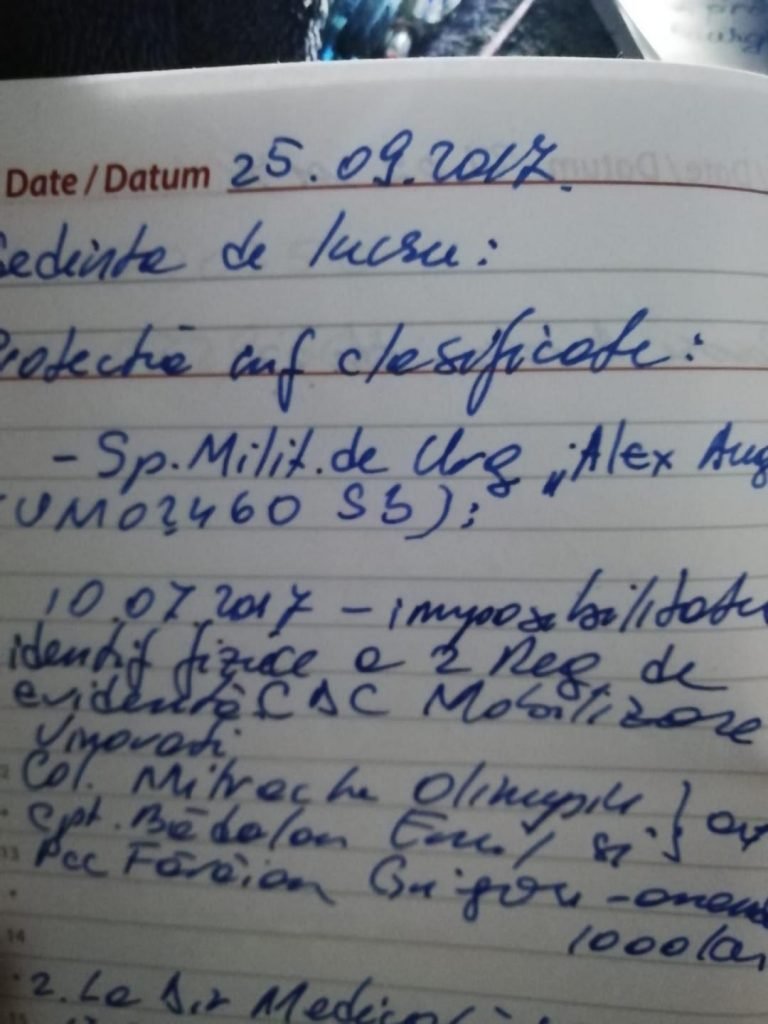 Date / Datum 25.09.2017.
Sedinta de lucru:
Protectia inf clasificate:
- Sp. Milit. de Urg „Alex Aug
(UM02460 SB);
10.07.2017 - imposibilitatea
identif fizice a 2 Reg. de
evidentă Mobilizare
Vinovati
Col. Mitrache Olimpiu }
Cpt. Bădălan Emil si }
13 Pcc Fărăian Grigore -
1000 lei
14
2. La Dir Medicală
15